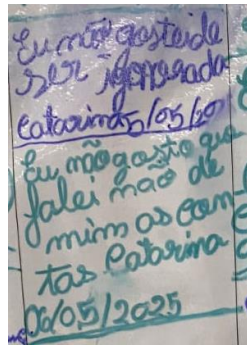 Eu não gostei de
ser ignorada
Catarina 5/05/20
Eu não gosto que
falei mao de
mim as con
tas Catarina
06/05/2025